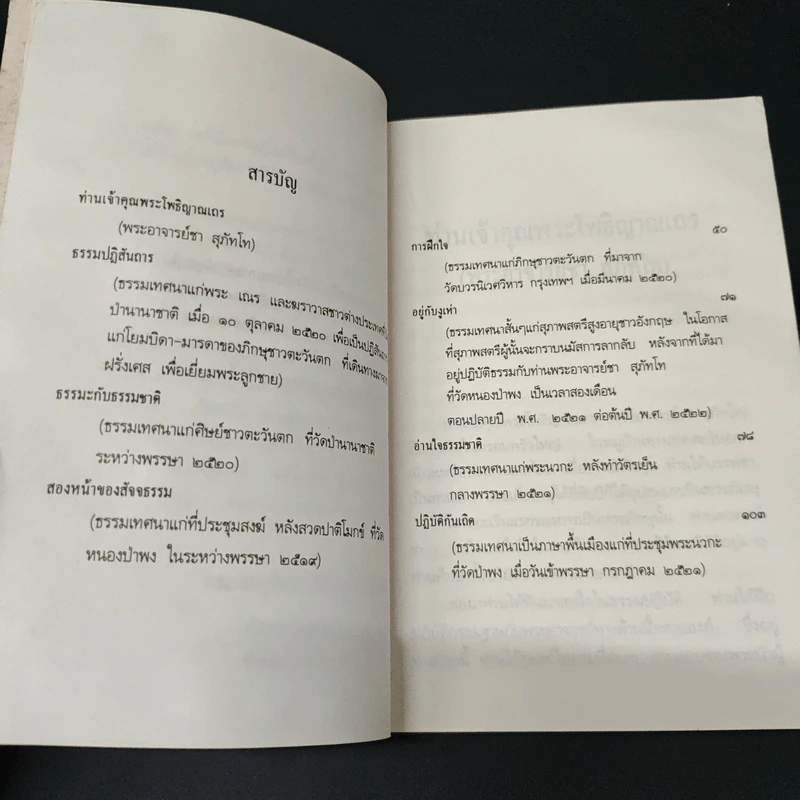 สารบัญ
ท่านเจ้าคุณพระโพธิญาณเถร
(พระอาจารย์ชา สุภัทโท)
ธรรมปฏิสันถาร
(ธรรมเทศนาแก่พระ เณร และฆราวาสชาวต่างประเทศที่
ป่านานาชาติ เมื่อ ๑๐ ตุลาคม ๒๕๒๐ เพื่อเป็นปฏิสันถาร
แก่โยมบิดา-มารดาของภิกษุชาวตะวันตก ที่เดินทางมาจาก
ฝรั่งเศส เพื่อเยี่ยมพระลูกชาย)
ธรรมะกับธรรมชาติ
(ธรรมเทศนาแก่ศิษย์ชาวตะวันตก ที่วัดป่านานาชาติ
ระหว่างพรรษา ๒๕๒๐)
สองหน้าของสัจจธรรม
(ธรรมเทศนาแก่ที่ประชุมสงฆ์ หลังสวดปาติโมกข์ ที่วัด
หนองป่าพง ในระหว่างพรรษา ๒๕๑๙)
การฝึกใจ ๕๐
(ธรรมเทศนาแก่ภิกษุชาวตะวันตก ที่มาจาก
วัดบวรนิเวศวิหาร กรุงเทพฯ เมื่อมีนาคม ๒๕๒๐)
อยู่กับงูเห่า ๗๑
(ธรรมเทศนาสั้นๆแก่สุภาพสตรีสูงอายุชาวอังกฤษ ในโอกาส
ที่สุภาพสตรีผู้นั้นจะกราบนมัสการลากลับ หลังจากที่ได้มา
อยู่ปฏิบัติธรรมกับท่านพระอาจารย์ชา สุภัทโท
ที่วัดหนองป่าพง เป็นเวลาสองเดือน
ตอนปลายปี พ.ศ. ๒๕๒๑ ต่อต้นปี พ.ศ. ๒๕๒๒)
อ่านใจธรรมชาติ ๗๘
(ธรรมเทศนาแก่พระนวกะ หลังทำวัตรเย็น
กลางพรรษา ๒๕๒๑)
ปฏิบัติกันเถิด ๑๐๓
(ธรรมเทศนาเป็นภาษาพื้นเมืองแก่ที่ประชุมพระนวกะ
ที่วัดป่าพง เมื่อวันเข้าพรรษา กรกฎาคม ๒๕๒๑)